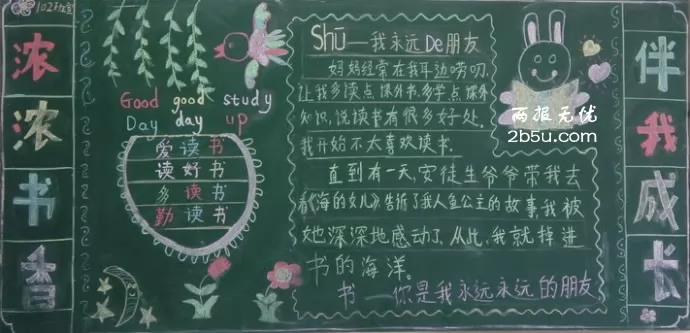 浓浓书香
Good good study
Day day up
爱读书
读好书
多读书
勤读书
Shū——我永远De朋友
妈妈经常在我耳边唠叨,
让我多读点课外书,多学点课外
知识,说读书有很多好处。
我开始不太喜欢读书。
直到有一天,安徒生爷爷带我去
看《海的女儿》告诉了我人鱼公主的故事,我被
她深深地感动了,从此,我就掉进
书的海洋。
书——你是我永远永远的朋友
伴我成长
两报无优
2b5u.com